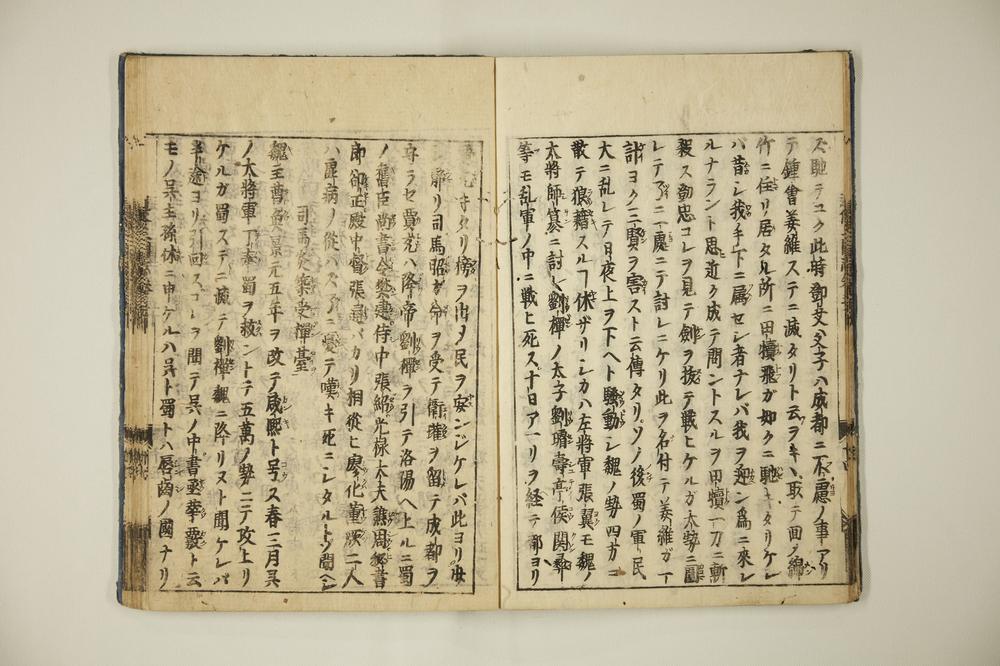 ズ馳テユク此時鄧艾父子ハ成都ニ不慮ノ事アリ
テ鍾會姜維ステニ滅タリト云ヲキヽ取テ回シ綿
竹ニ住リ居タル所ニ田犢飛ガ如クニ馳キタリケレ
バ昔シ我手下ニ属セシ者ナレバ我ヲ迎ン爲ニ來レ
ルナラント思近ク成テ問ントスルヲ田犢一刀ニ斬
殺ス鄧忠コレヲ見テ劍ヲ抜テ戰ヒケルガ大勢ニ圍
レテ了ニ一處ニテ討レニケリ此ヲ名付テ姜維ガ一
計ヨク三賢ヲ害スト云傳タリソノ後蜀ノ軍民
大ニ乱レテ日夜上ヲ下ヘト騒動シ魏ノ勢四方ニ
散テ狼籍スルヿ休ザリシカハ左將軍張翼モ魏ノ
太將師簒ニ討レ劉禪ノ太子劉璿壽亭侯関彝
等モ乱軍ノ中ニ戰ヒ死ス十日アマリヲ経テ都ヨリ
守タリ榜ヲ出メ民ヲ安ンジケレバ此ヨリ
静リ司馬昭ガ命ヲ受テ衞瓘ヲ留テ成都ヲ
守ラセ賈充ハ降帝劉禪ヲ引テ洛陽ヘ上ルニ蜀
ノ舊臣尚書令樊建侍中張紹光禄大夫譙周秘書
郎郤正殿中督張通バカリ相從ヒ廖化董厥二人
ハ虚病ノ從ハズ了ニ憂テ嘆キ死ニシタルトゾ聞ヘシ
司馬炎築受禪臺
魏王曹奐景元五年ヲ改テ咸熙ト号ス春三月呉
ノ大將軍丁奉蜀ヲ救ントテ五萬ノ勢ニテ攻上リ
ケルガ蜀ステニ滅テ劉禪魏ニ降リヌト聞ケレバ
半途ヨリ引回スコレヲ聞テ呉ノ中書丞華覈ト云
モノ呉主孫休ニ申ケルハ呉ト蜀トハ唇齒ノ國ナリ